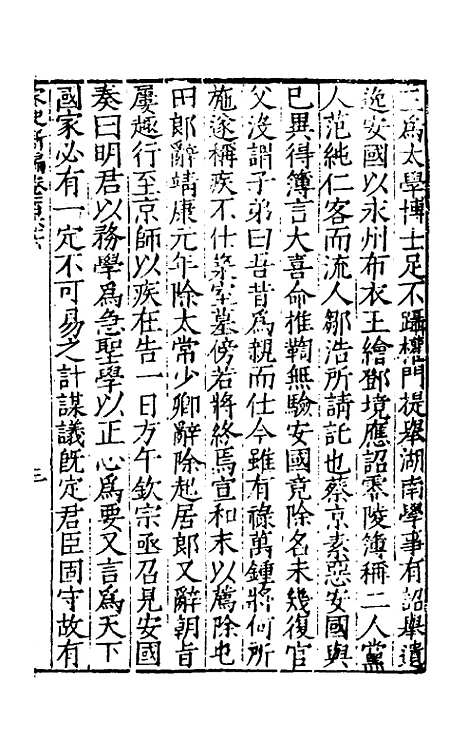 三爲太學博士足不躡權門提舉湖南學事有詔舉遺
逸安國以永州布衣王繪鄧璋應詔零陵簿稱二人黨
人范純仁客而流人鄒浩所請託也蔡京素惡安國與
已異得簿言大喜命推鞫無驗安國竟除名未幾復官
父沒謂子弟曰吾昔爲親而仕今雖有祿萬鍾將何所
施遂稱疾不仕築室墓傍若將終焉宣和末以薦除屯
田郎辭靖康元年除太常少卿辭除起居郎又辭朝旨
屢趣行至京師以疾在告一日方午欽宗亟召見安國
奏曰明君以務學爲急聖學以正心爲要又言爲天下
國家必有一定不可易之計謀議旣定君臣固守故有
宋史新編卷一百六十六
三